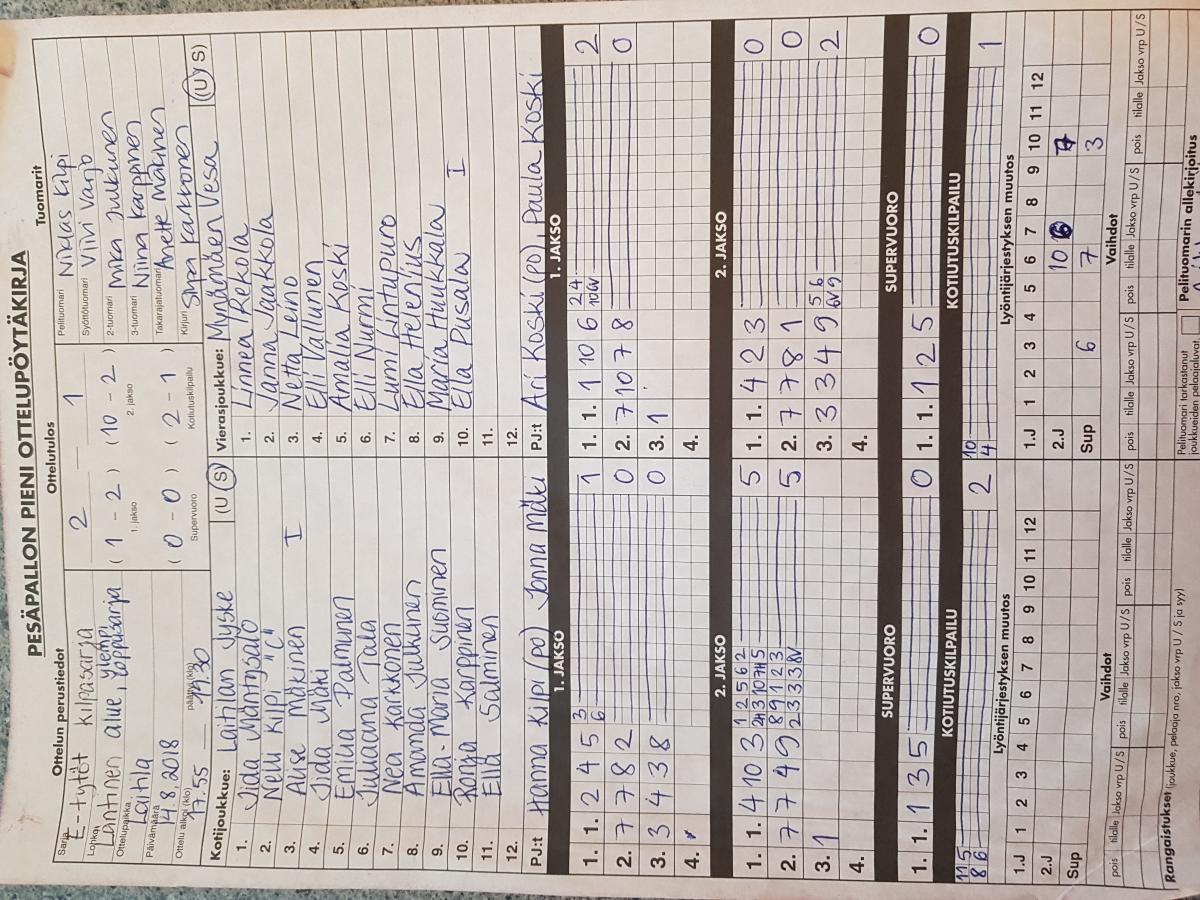 PESÄPALLON PIENI OTTELUPÖYTÄKIRJA
Ottelun perustiedot
Sarja E-tytöt kilpasarja
Lohko Läntinen alue, ylempi loppusarja
Ottelupaikka Laitila
Päivämäärä 14.8.2018
Ottelu alkoi (klo) 17.55 päättyi (klo) 19.30
Ottelutulos
2 1
( 1 - 2 ) ( 10 - 2 )
1. jakso 2. jakso
( 0 - 0 ) ( 2 - 1 )
Supervuoro Kotiutuskilpailu
Tuomarit
Pelituomari Niklas Kilpi
Syöttötuomari Viivi Varjo
2-tuomari Mika Julkunen
3-tuomari Niina Karppinen
Takarajatuomari Anette Mäkinen
Kirjuri Sirpa Kakkonen
Kotijoukkue: Laitilan Jyske (U S)
1. Iida Mäntysalo
2. Nelli Kilpi "C"
3. Alise Mäkinen I
4. Iida Mäki
5. Emilia Palmunen
6. Juliaana Tala
7. Nea Kakkonen
8. Amanda Julkunen
9. Ella-Maria Suominen
10. Ronja Karppinen
11. Ella Salminen
12.
PJ:t Hanna Kilpi (po) Jonna Mäki
Vierasjoukkue: Mynämäen Vesa (U S)
1. Linnea Rekola
2. Janna Jaakkola
3. Netta Leino
4. Elli Vallunen
5. Amalia Koski
6. Elli Nurmi
7. Lumi Lintupuro
8. Ella Helenius
9. Maria Huukkala
10. Eila Pusala I
11.
12.
PJ:t Ari Koski (po), Paula Koski
1. JAKSO
1. 1. 2 4 5 3 6 1
2. 7 7 8 2 0
3. 3 4 3 8 0
4.
2. JAKSO
1. 1. 4 10 3 1 2 5 6 2 5
2. 7 7 4 9 8 9 1 2 3 5
2 3 3 3 8V
3. 1
4.
SUPERVUORO
1. 1. 1 3 5 0
KOTIUTUSKILPAILU
11 5
8 6 2
Lyöntijärjestyksen muutos
1.J 1 2 3 4 5 6 7 8 9 10 11 12
2.J
Sup
Vaihdot
pois tilalle Jakso vrp U/S pois tilalle Jakso vrp U/S pois tilalle Jakso vrp U/S
Rangaistukset (joukkue, pelaaja nro, jakso vrp U / S ja syy)
1. JAKSO
1. 1. 1 10 6 2 4 2
10 6V
2. 7 10 7 8 0
3. 1
4.
2. JAKSO
1. 1. 4 2 3 0
2. 7 7 8 1 0
3. 3 3 4 9 5 6 2
6V 9
4.
SUPERVUORO
1. 1. 1 2 5 0
KOTIUTUSKILPAILU
10
4 1
Lyöntijärjestyksen muutos
1.J 1 2 3 4 5 6 7 8 9 10 11 12
2.J 10 6 7
Sup 6 7 3
Vaihdot
pois tilalle Jakso vrp U/S pois tilalle Jakso vrp U/S pois tilalle Jakso vrp U/S
Pelituomari tarkastanut
joukkueiden pelaajaluvat.
Pelituomarin allekirjoitus